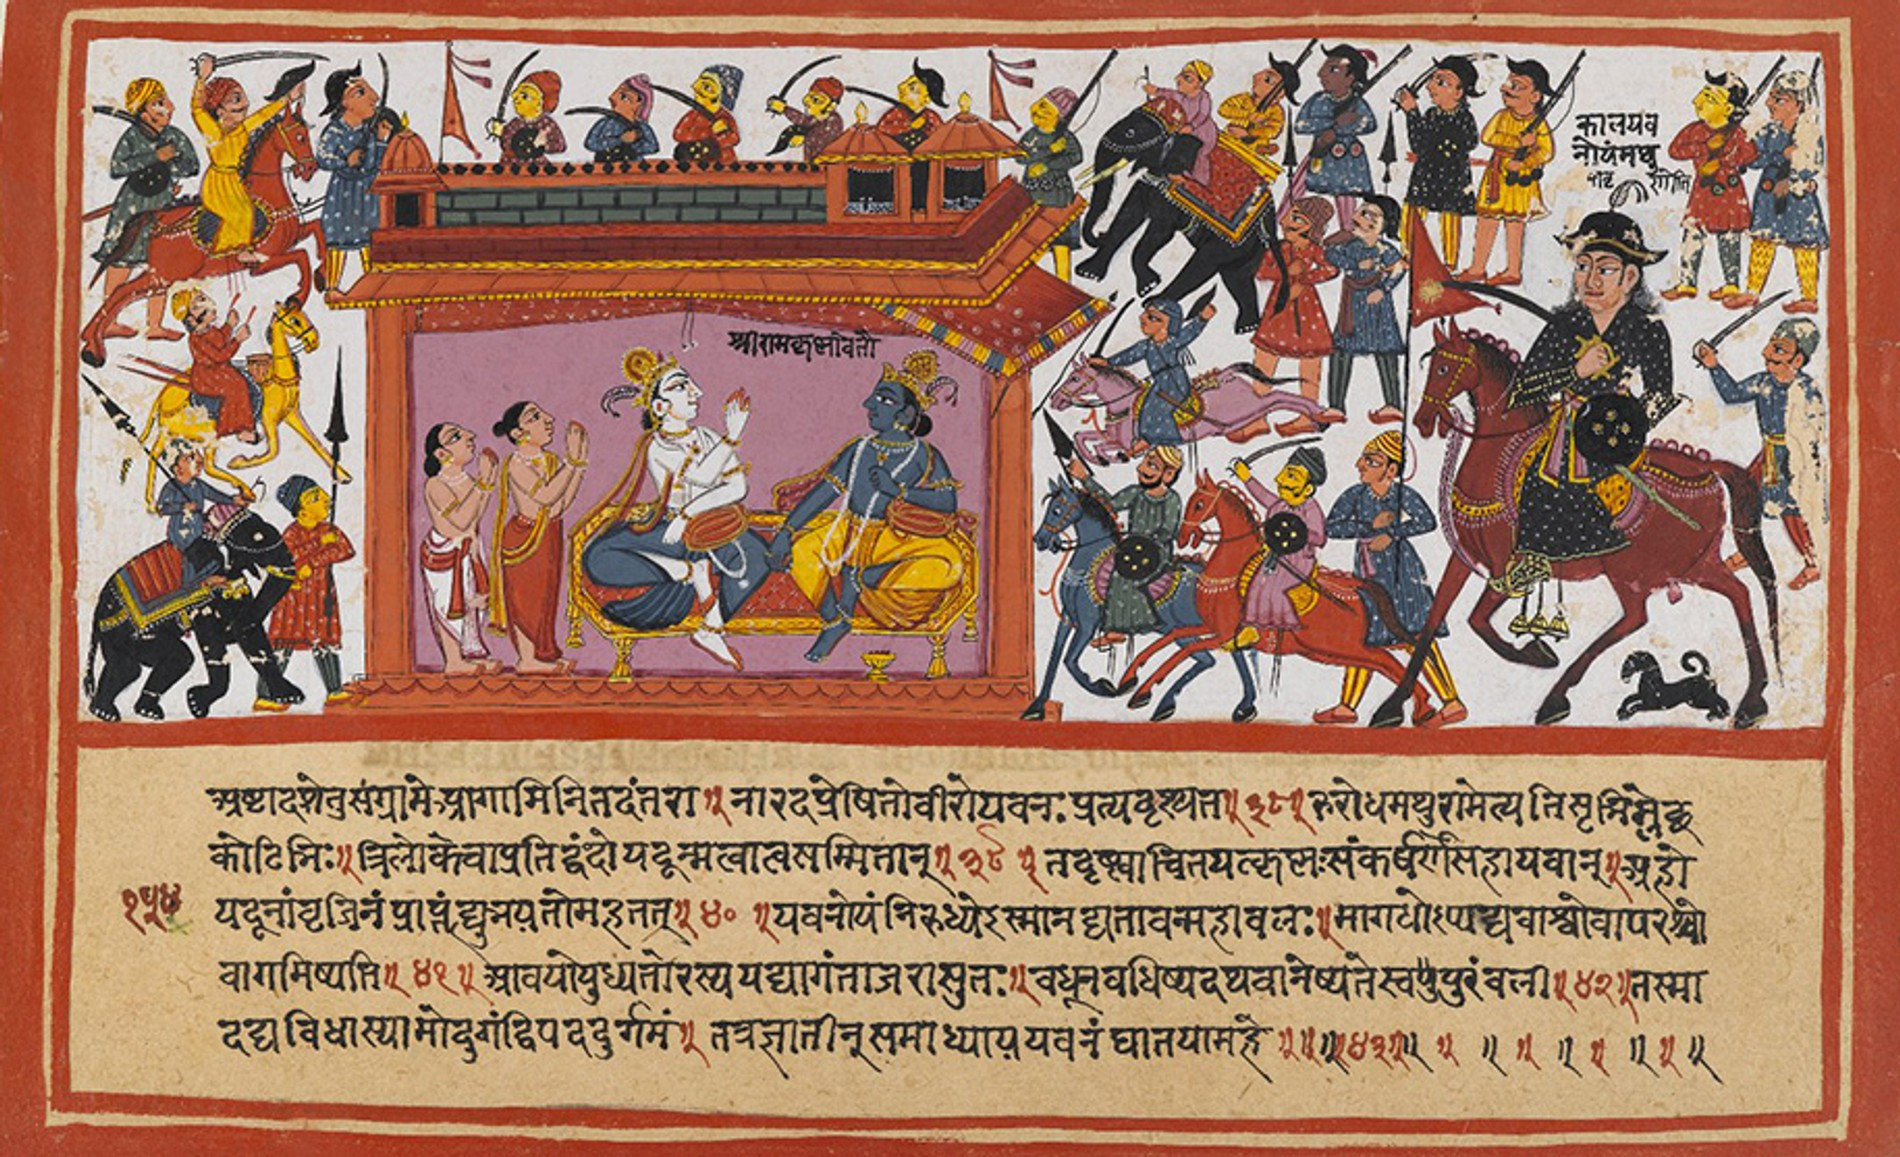 कालयव
नोयंमथु
श्रीरामकृष्णौवतौ
अष्टादशेतुसंग्रामेआगामिनितदंतरा॥नारदप्रेषितोवीरोयवनःप्रत्यदृश्यत॥३८॥रुरोधमथुरामेत्यतिसृभिर्म्लेछ
कोटिभिः॥त्रिलोकेवाप्रतिद्वंदोयदून्मत्वात्मसम्मितान्॥३९॥तंदृष्ट्वाचिंतयत्कृष्णःसंकर्षणसहायवान्॥अहो
१५४
यदूनांवृजिनंप्राप्तंह्युभयतोमहत्तत्॥४०॥यवनोयंनिरुध्येऽस्मानद्यतावन्महाबलः॥मागधोऽप्यद्यवाश्वोवापरश्वो
वागमिष्यति॥४१॥आवयोयुध्यतोरस्ययद्यागंताजरासुतः॥बधून्वधिष्यदथवानेष्यतेस्वपुरंबली॥४२॥तस्मा
दद्यविधास्यामोदुर्गंद्विपददुर्गमं॥तत्रज्ञातीन्समाध्याययवनंघातयामहे॥॥॥४३॥॥॥॥॥॥॥॥॥